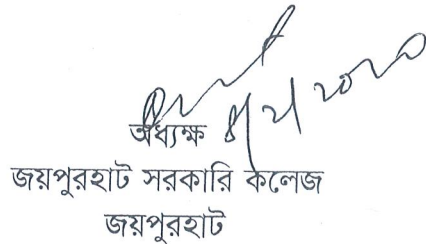 অধ্যক্ষ
জয়পুরহাট সরকারি কলেজ
জয়পুরহাট